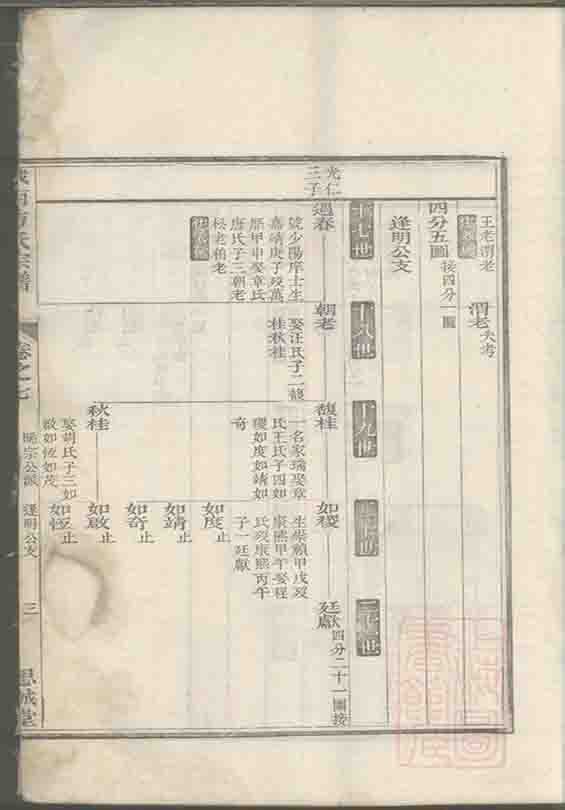 王老渭老
渭老失考
四分五圖接四分一圖
逢明公支
十七世
十八世
十九世
二十世
光仁
三子
遇春
號少陽庠士生
嘉靖庚子歿萬
曆甲申娶章氏
唐氏子三朝老
松老柏老
朝老
娶汪氏子二馥
桂秋桂
馥桂
一名家瑞娶章
氏王氏子四如
稷如度如靖如
奇
如稷
生崇禎甲戌歿
康熙甲午娶程
氏歿康熙丙午
子一廷獻
廷獻四分二十一圖接
如度止
如靖止
如奇止
秋桂
娶胡氏子三如
啟如恆如茂
如啟止
如恆止
氏宗譜
卷之七
逢明公支
三
思誠堂